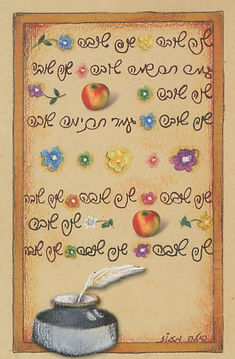 שנה טובה שנה טובה
גמר חתימה טובה שנה טובה
שנה טובה
שנה טובה גמר חתימה טובה
שנה טובה שנה טובה שנה
שנה טובה שנה טובה
שנה טובה שנה טובה שנה